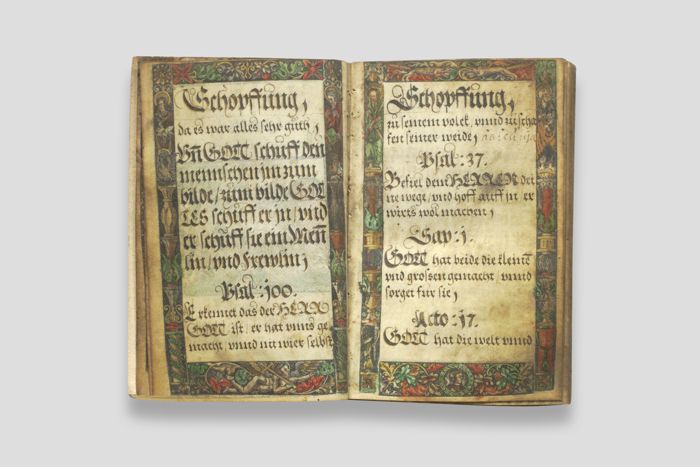 Schopffung,
da es war alles sehr guth,
Vñ GOTT schuff den
mennschen im zum
bilde/zum bilde GOT
TES schuff er in/vnd
er schuff sie ein Menñ
lin/vnd Frewlin,
Psal:100.
Erkennet das der HERR
GOTT ist/er hat vnns ge
macht, vnnd nit wier selbst
Schopffung,
zu seinem volck, vnnd zu scha
fen seiner weide,
Psal:37.
Befiel dem HERREN dei
ne wege/vnd hoff auff in er
wirts wol machen,
Sap:j.
GOTT hat beide die kleine
vnd grossen gemacht, vnnd
sorget fur sie,
Acto:17.
GOTT hat die welt vnnd